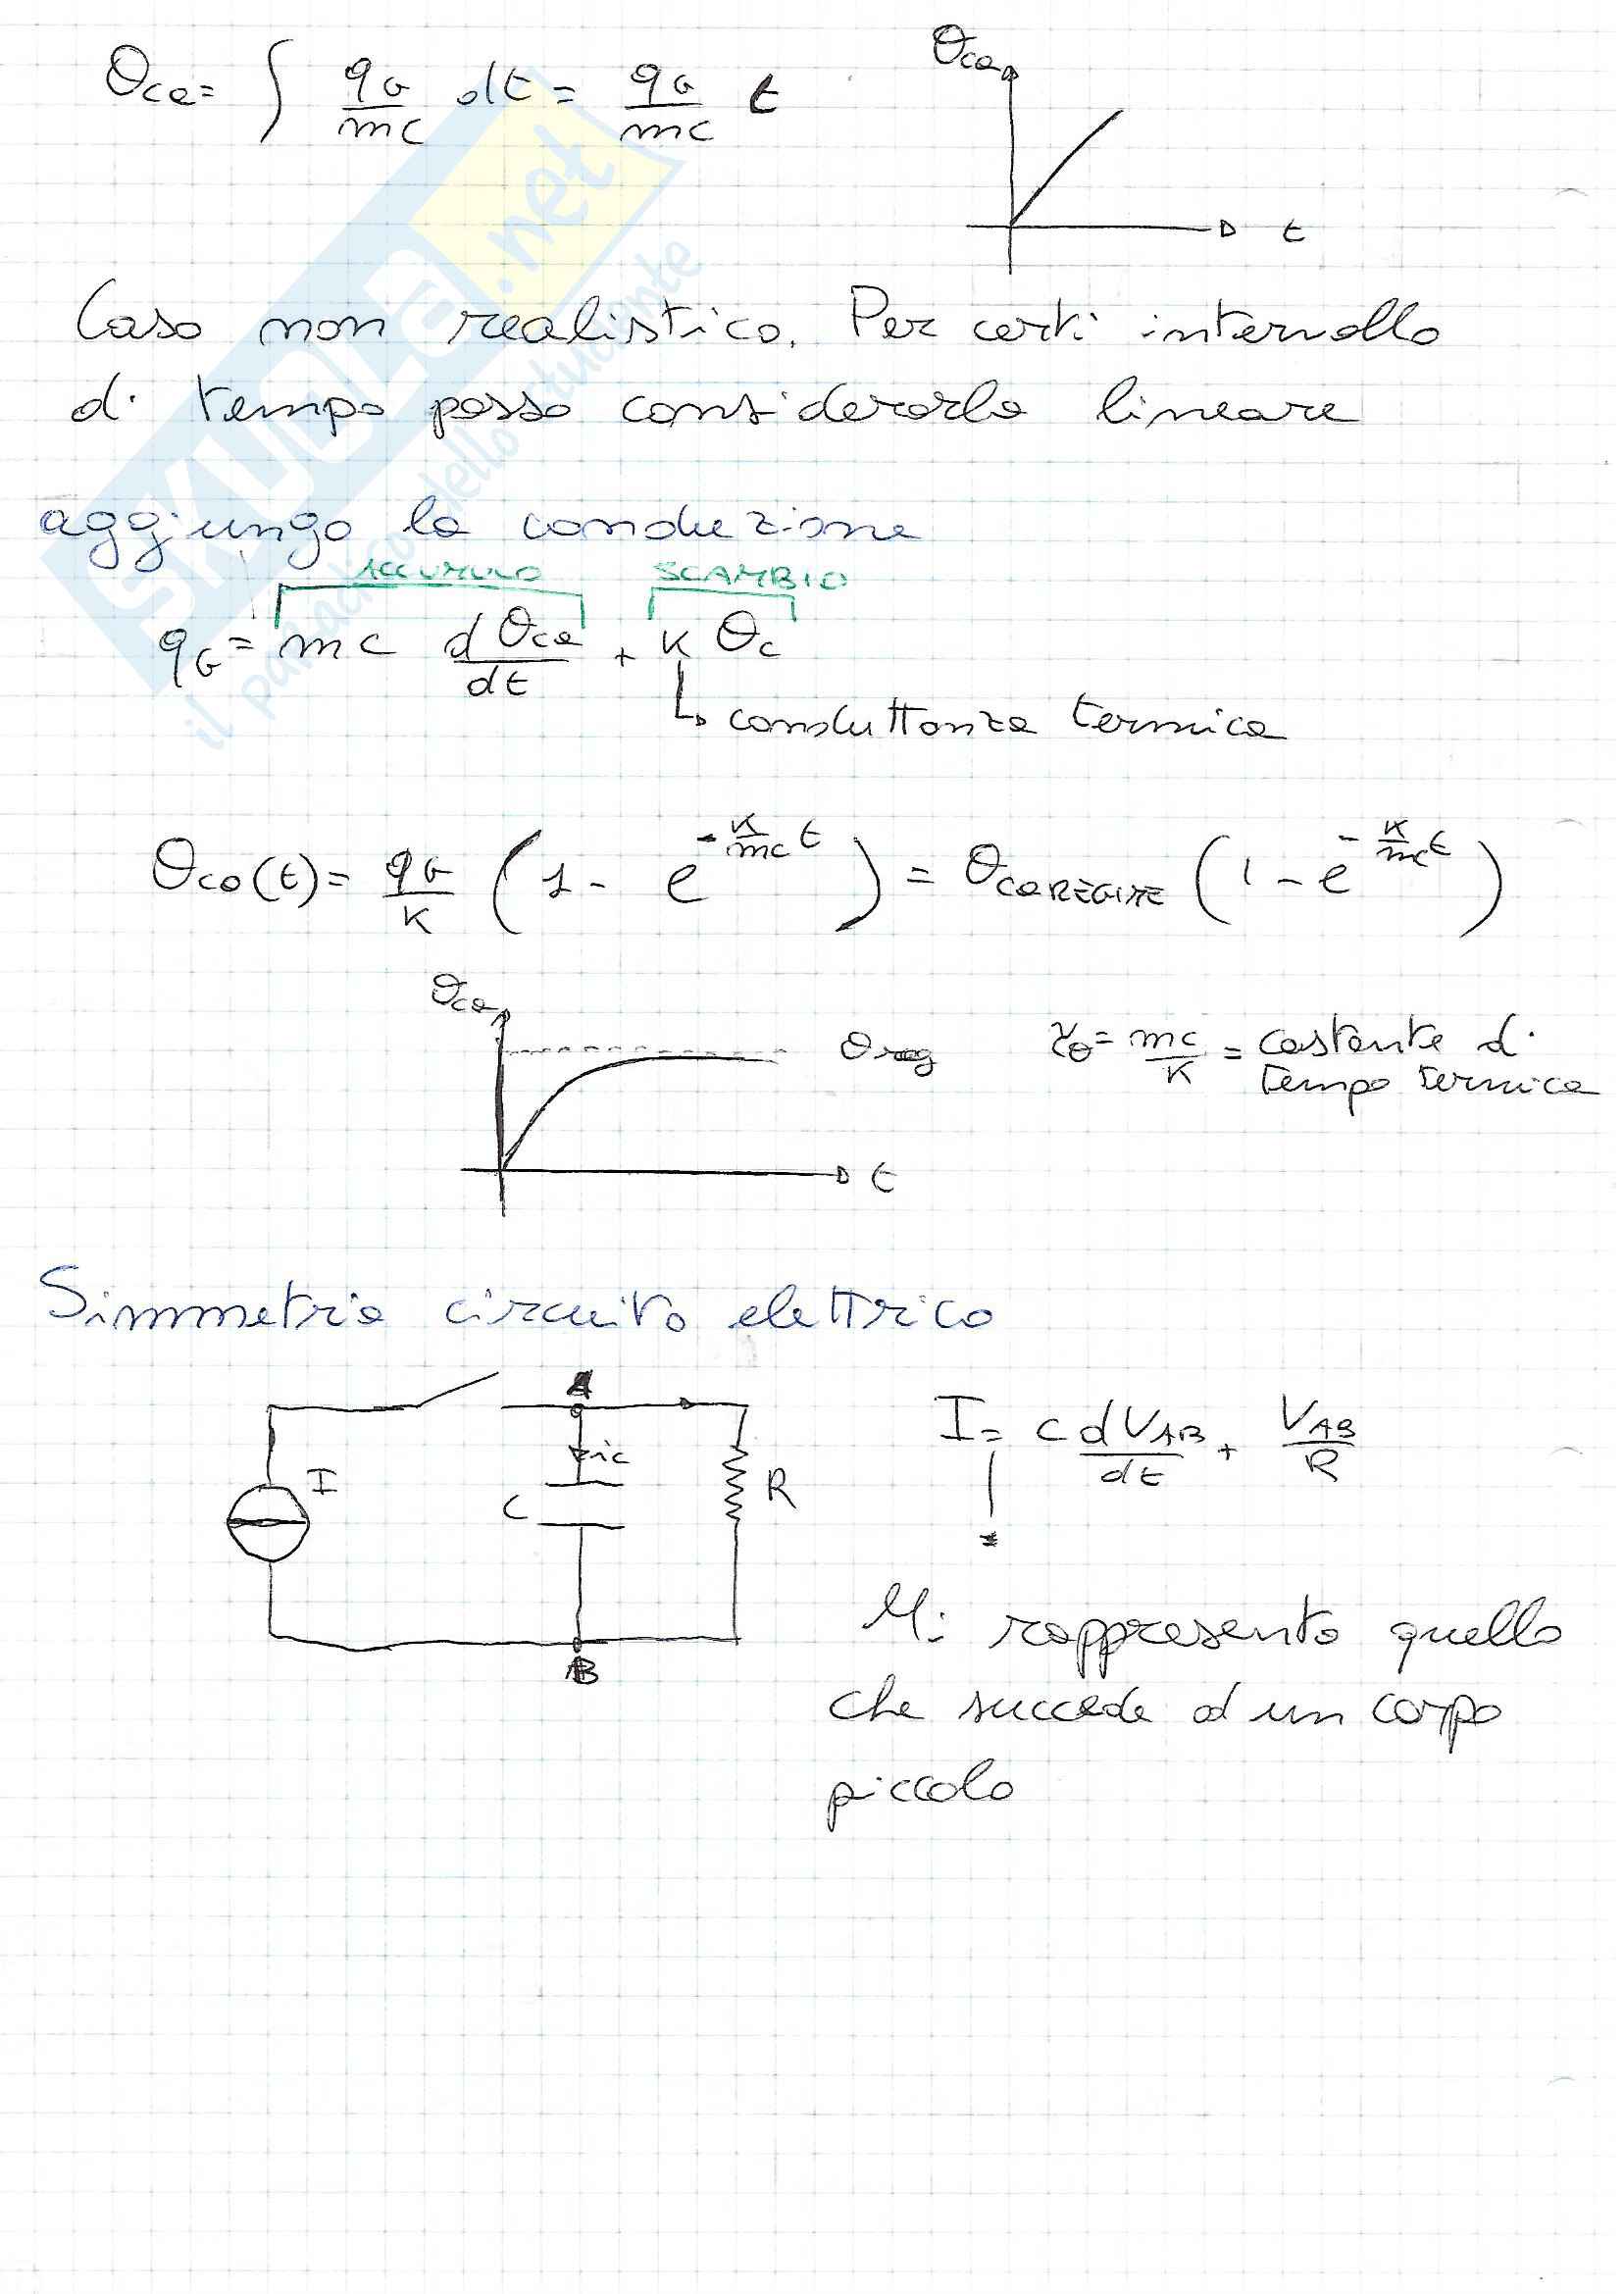 θca = ∫ qG/mc dt = qG/mc t
θca
t
Caso non realistico. Per certi intervallo
di tempo posso considerarlo lineare
aggiungo la conduzione
ACCUMULO SCAMBIO
qG = mc dθca/dt + K θc
conduttanza termica
θca(t) = qG/K (1 - e^(-K/mc t)) = θcaREGIME (1 - e^(-K/mc t))
θca
θreg
t
τθ = mc/K = costante di
tempo termica
Simmetria circuito elettrico
A
I
ic
C
R
B
I = C dVAB/dt + VAB/R
Mi rappresenta quello
che succede ad un corpo
piccolo
SKUOLA.net
il paradiso dello studente